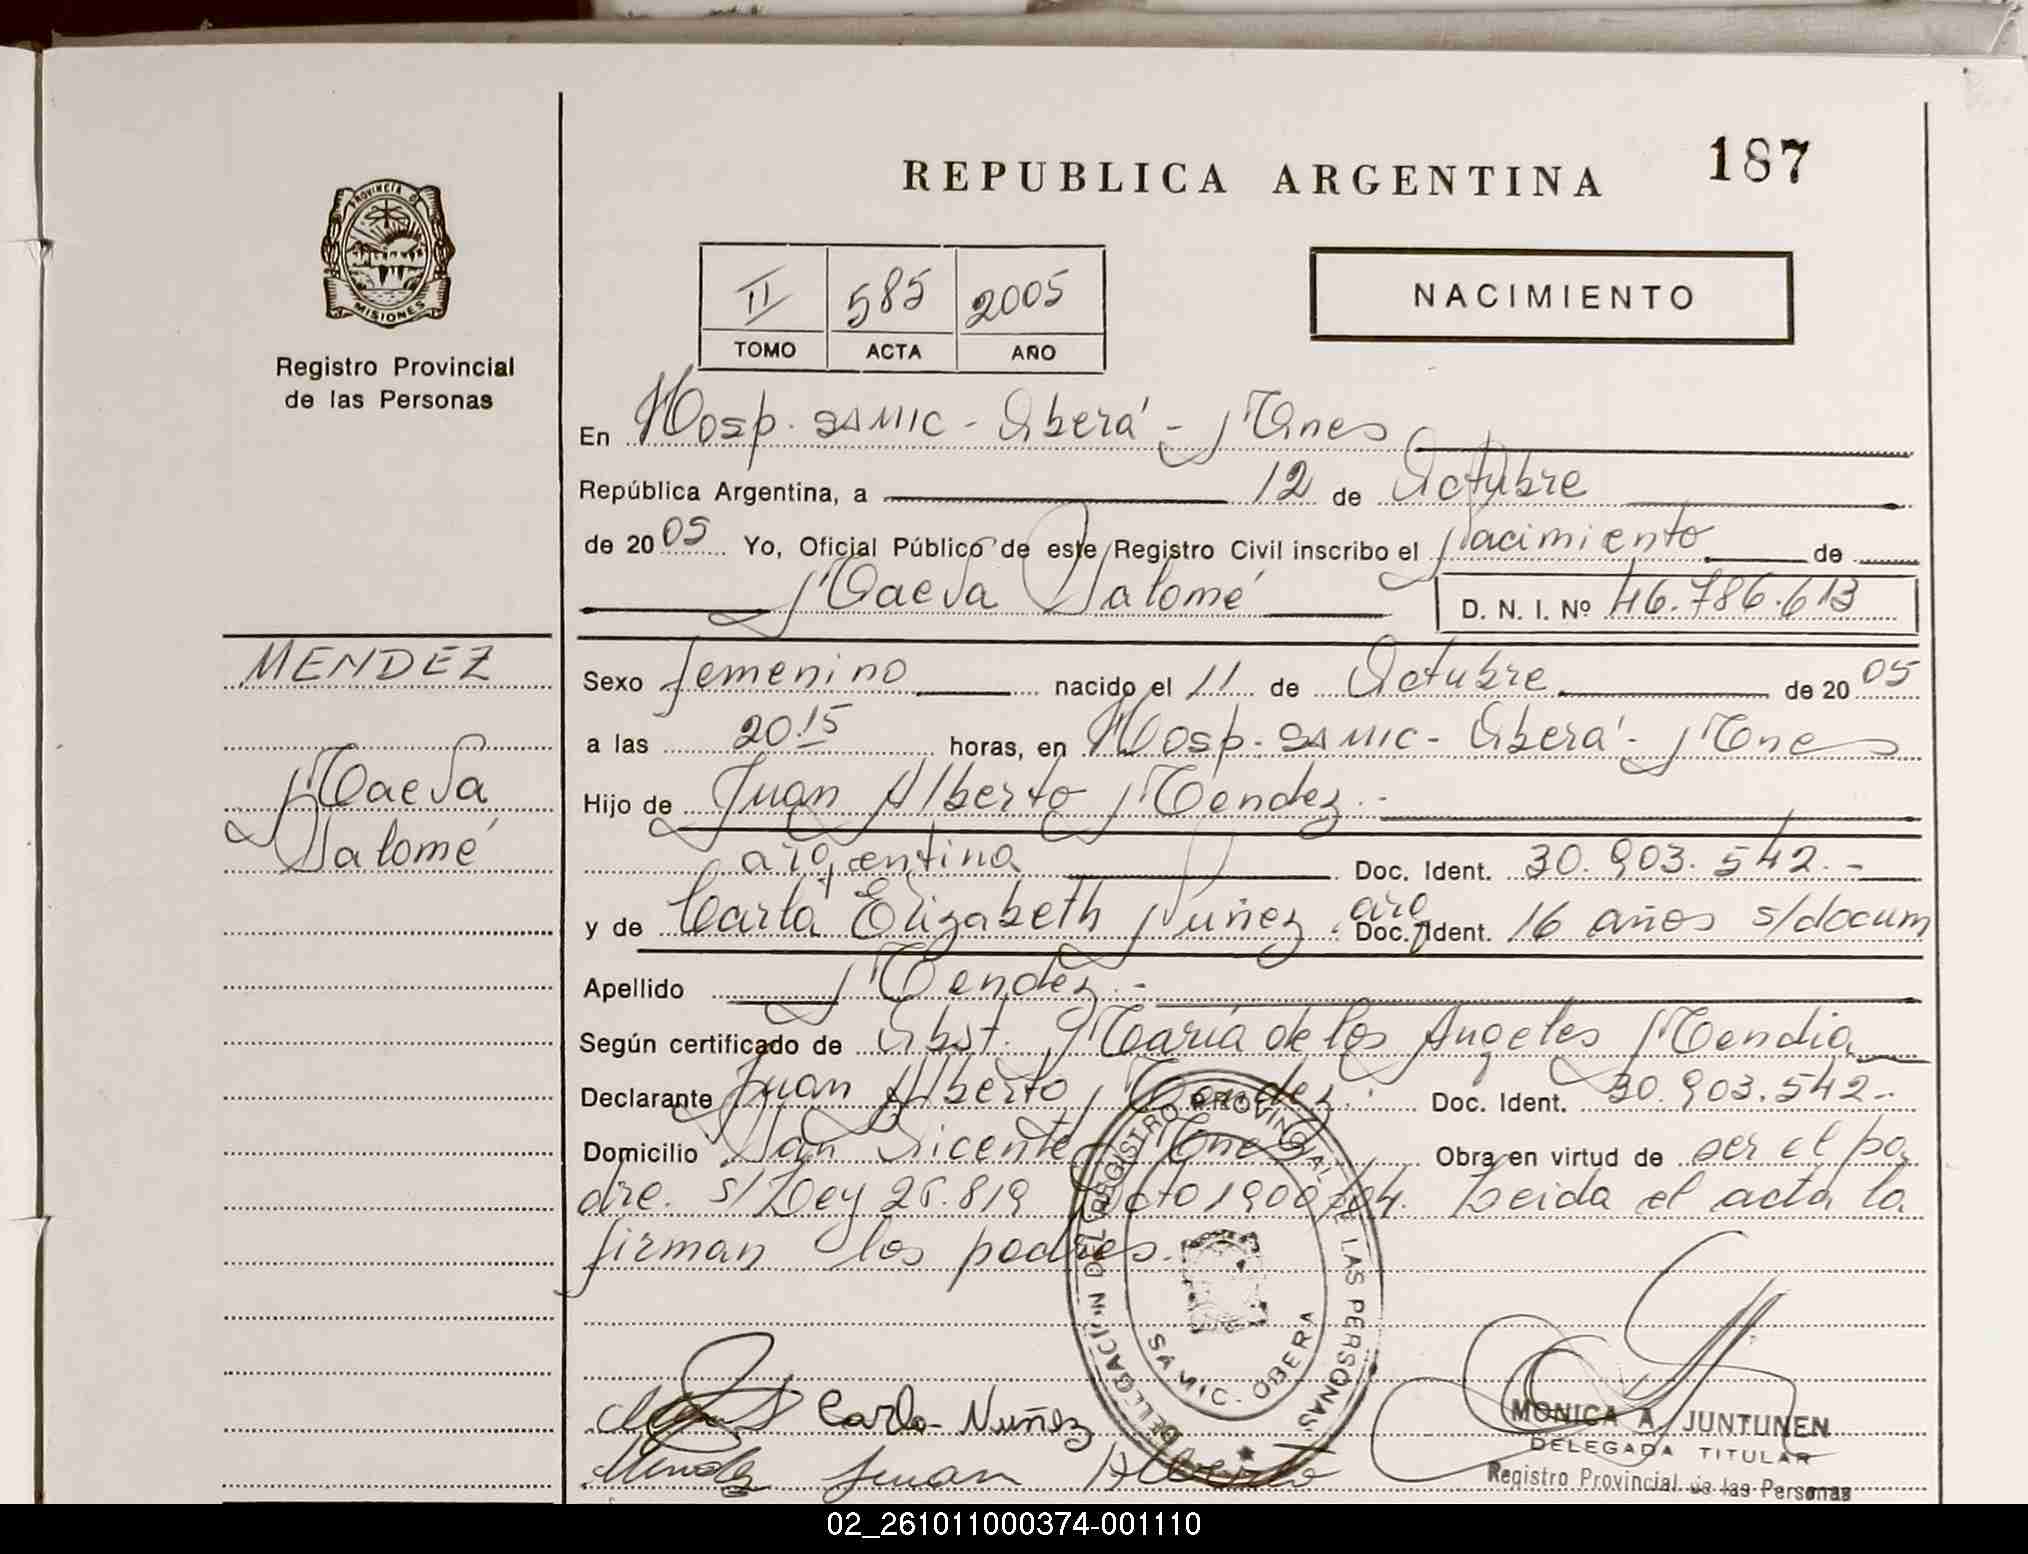 REPUBLICA ARGENTINA
187
PROVINCIA DE
MISIONES
Registro Provincial
de las Personas
II 585 2005
TOMO ACTA AÑO
NACIMIENTO
En Hosp. SAMIC - Oberá - Mnes
República Argentina, a 12 de Octubre
de 2005 Yo, Oficial Público de este Registro Civil inscribo el Nacimiento de
Maela Salomé D. N. I. Nº 46.786.613
MENDEZ
Maela
Salomé
Sexo femenino nacido el 11 de Octubre de 2005
a las 20.15 horas, en Hosp. SAMIC - Oberá - Mnes
Hijo de Juan Alberto Mendez.-
argentina Doc. Ident. 30.903.542.-
y de Carla Elizabeth Nuñez. arg Doc. Ident. 16 años s/docum
Apellido Mendez.-
Según certificado de Obst. María de los Angeles Mendia
Declarante Juan Alberto Mendez. Doc. Ident. 30.903.542.-
Domicilio San Vicente Mnes Obra en virtud de ser el pa
dre. s/Ley 25.819 Dcto 1900/04. Leida el acta la
firman los padres.
DELEGACION DEL REGISTRO PROVINCIAL DE LAS PERSONAS
SAMIC. OBERA
Carla Nuñez
Mendez Juan Alberto
MONICA A. JUNTUNEN
DELEGADA TITULAR
Registro Provincial de las Personas
02_261011000374-001110